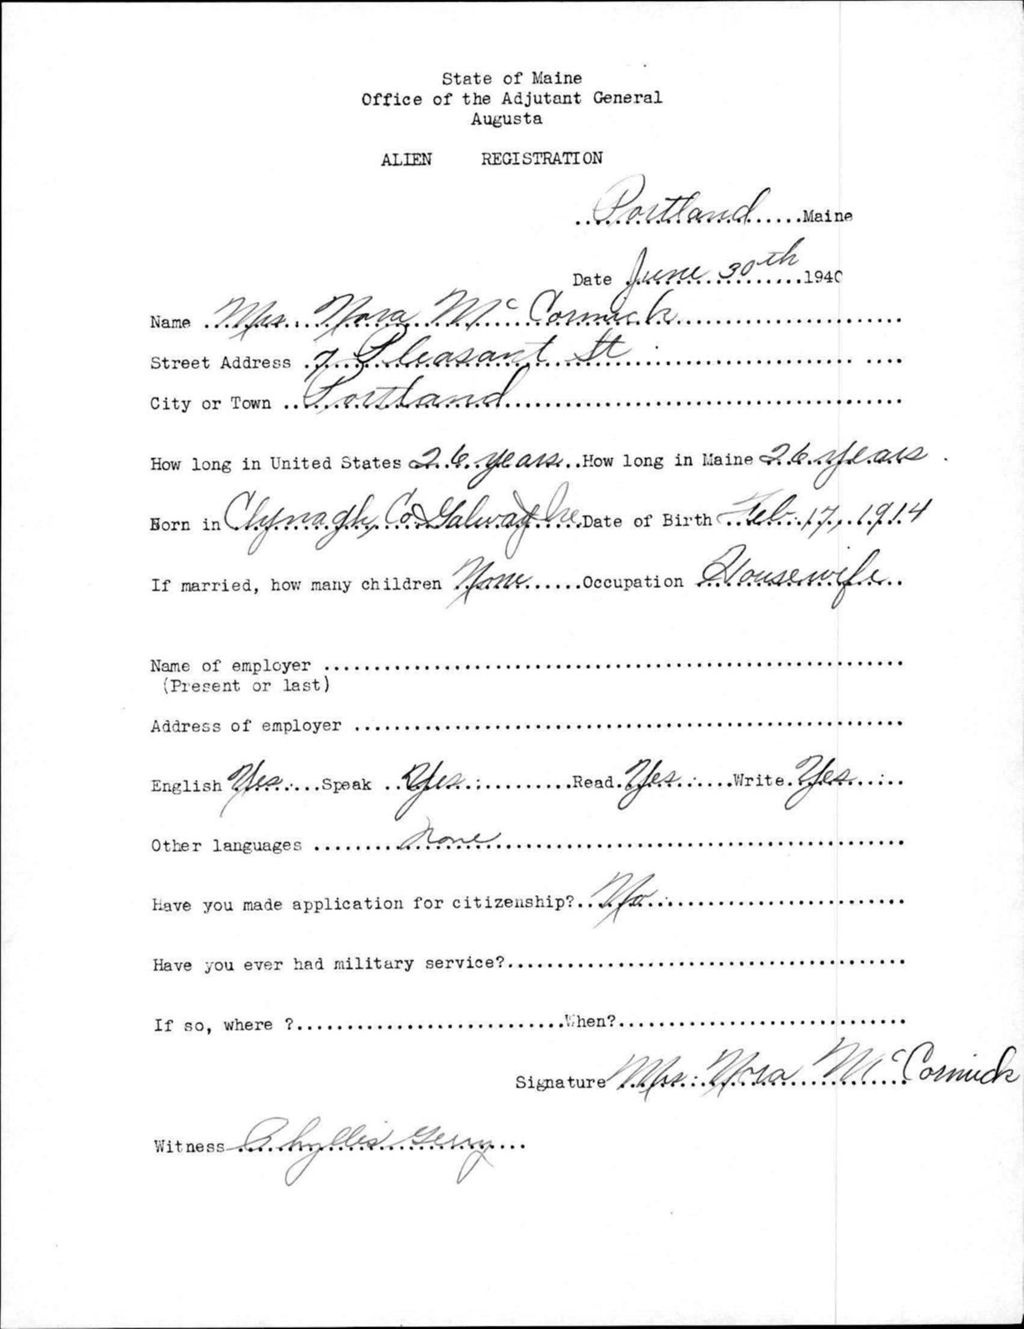 State of Maine
Office of the Adjutant General
Augusta
ALIEN REGISTRATION
Portland Maine
Date June 30th 1940
Name Mrs. Nora McCormick
Street Address 7 Pleasant St
City or Town Portland
How long in United States 26 years How long in Maine 26 years
Born in Clynagh, Co Galway Ire Date of Birth Feb. 17, 1914
If married, how many children None Occupation Housewife
Name of employer
(Present or last)
Address of employer
English Yes Speak Yes Read Yes Write Yes
Other languages None
Have you made application for citizenship? No
Have you ever had military service?
If so, where ? When?
Signature Mrs. Nora McCormick
Witness Phyllis Gerry